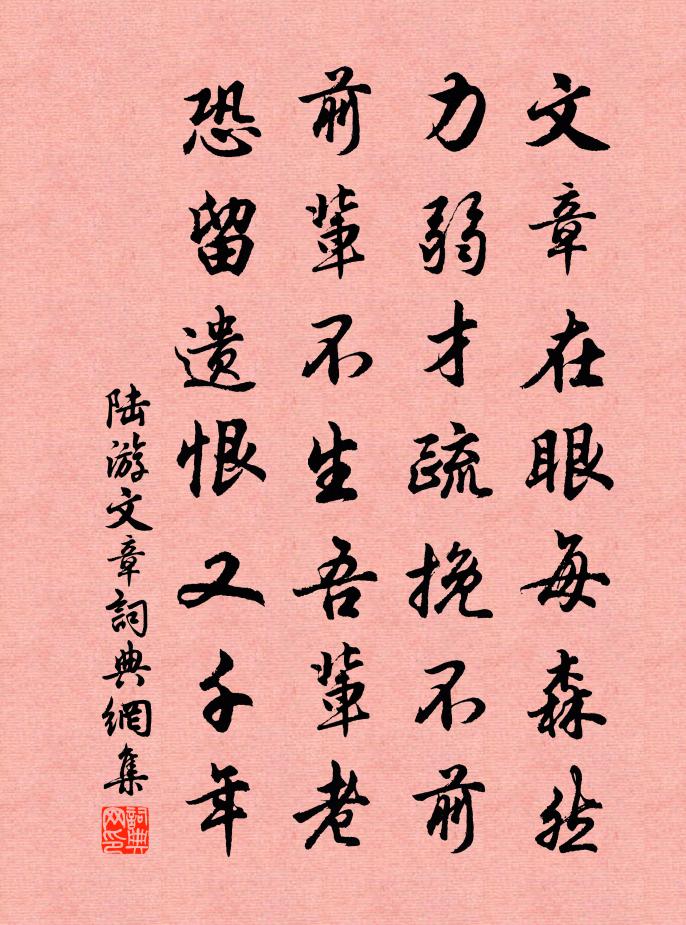 文章在眼每森然
力弱才疏挽不前
前輩不生吾輩老
恐留遗恨又千年
陆游文章詞典網集
詞典网印